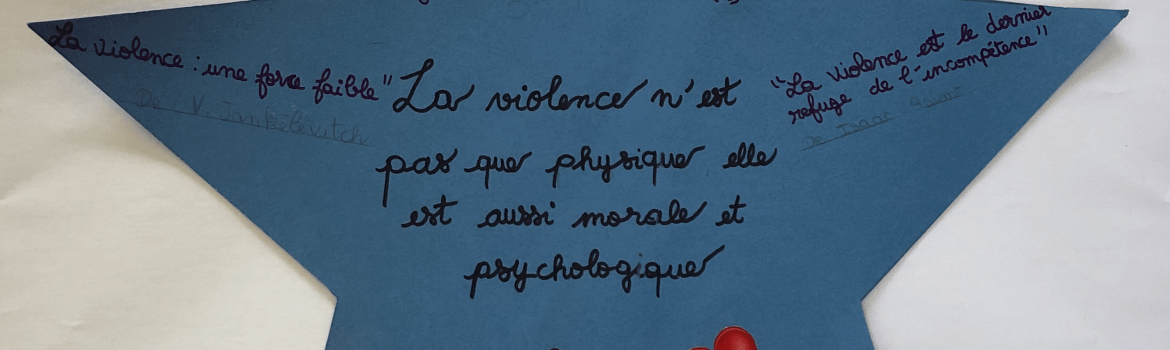 La violence : une force faible"
De V. Jankélévitch
La violence n'est
pas que physique elle
est aussi morale et
psychologique
"La violence est le dernier
refuge de l'incompétence"
De Isaac